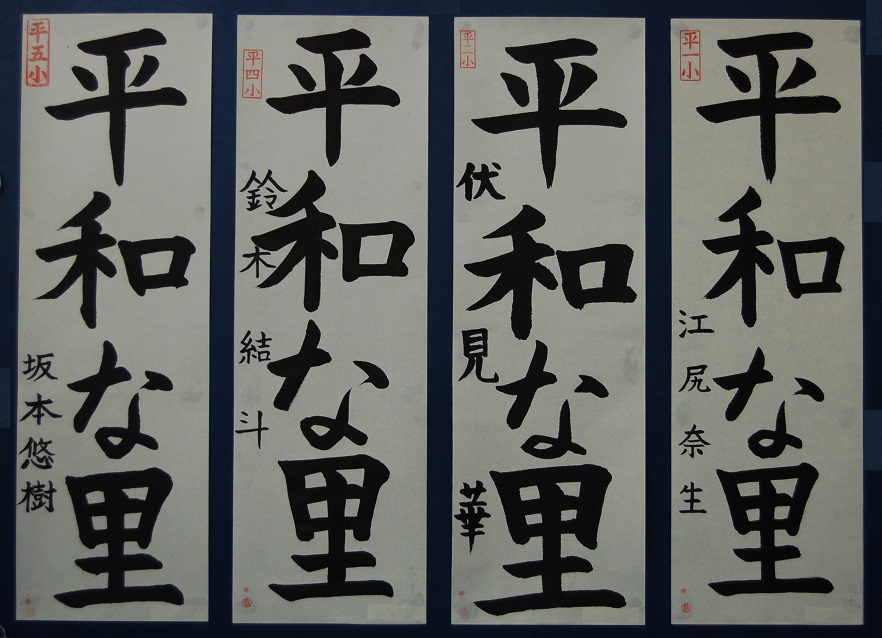 平一小
平和な里
江尻奈生
平二小
平和な里
伏見華
平四小
平和な里
鈴木結斗
平五小
平和な里
坂本悠樹